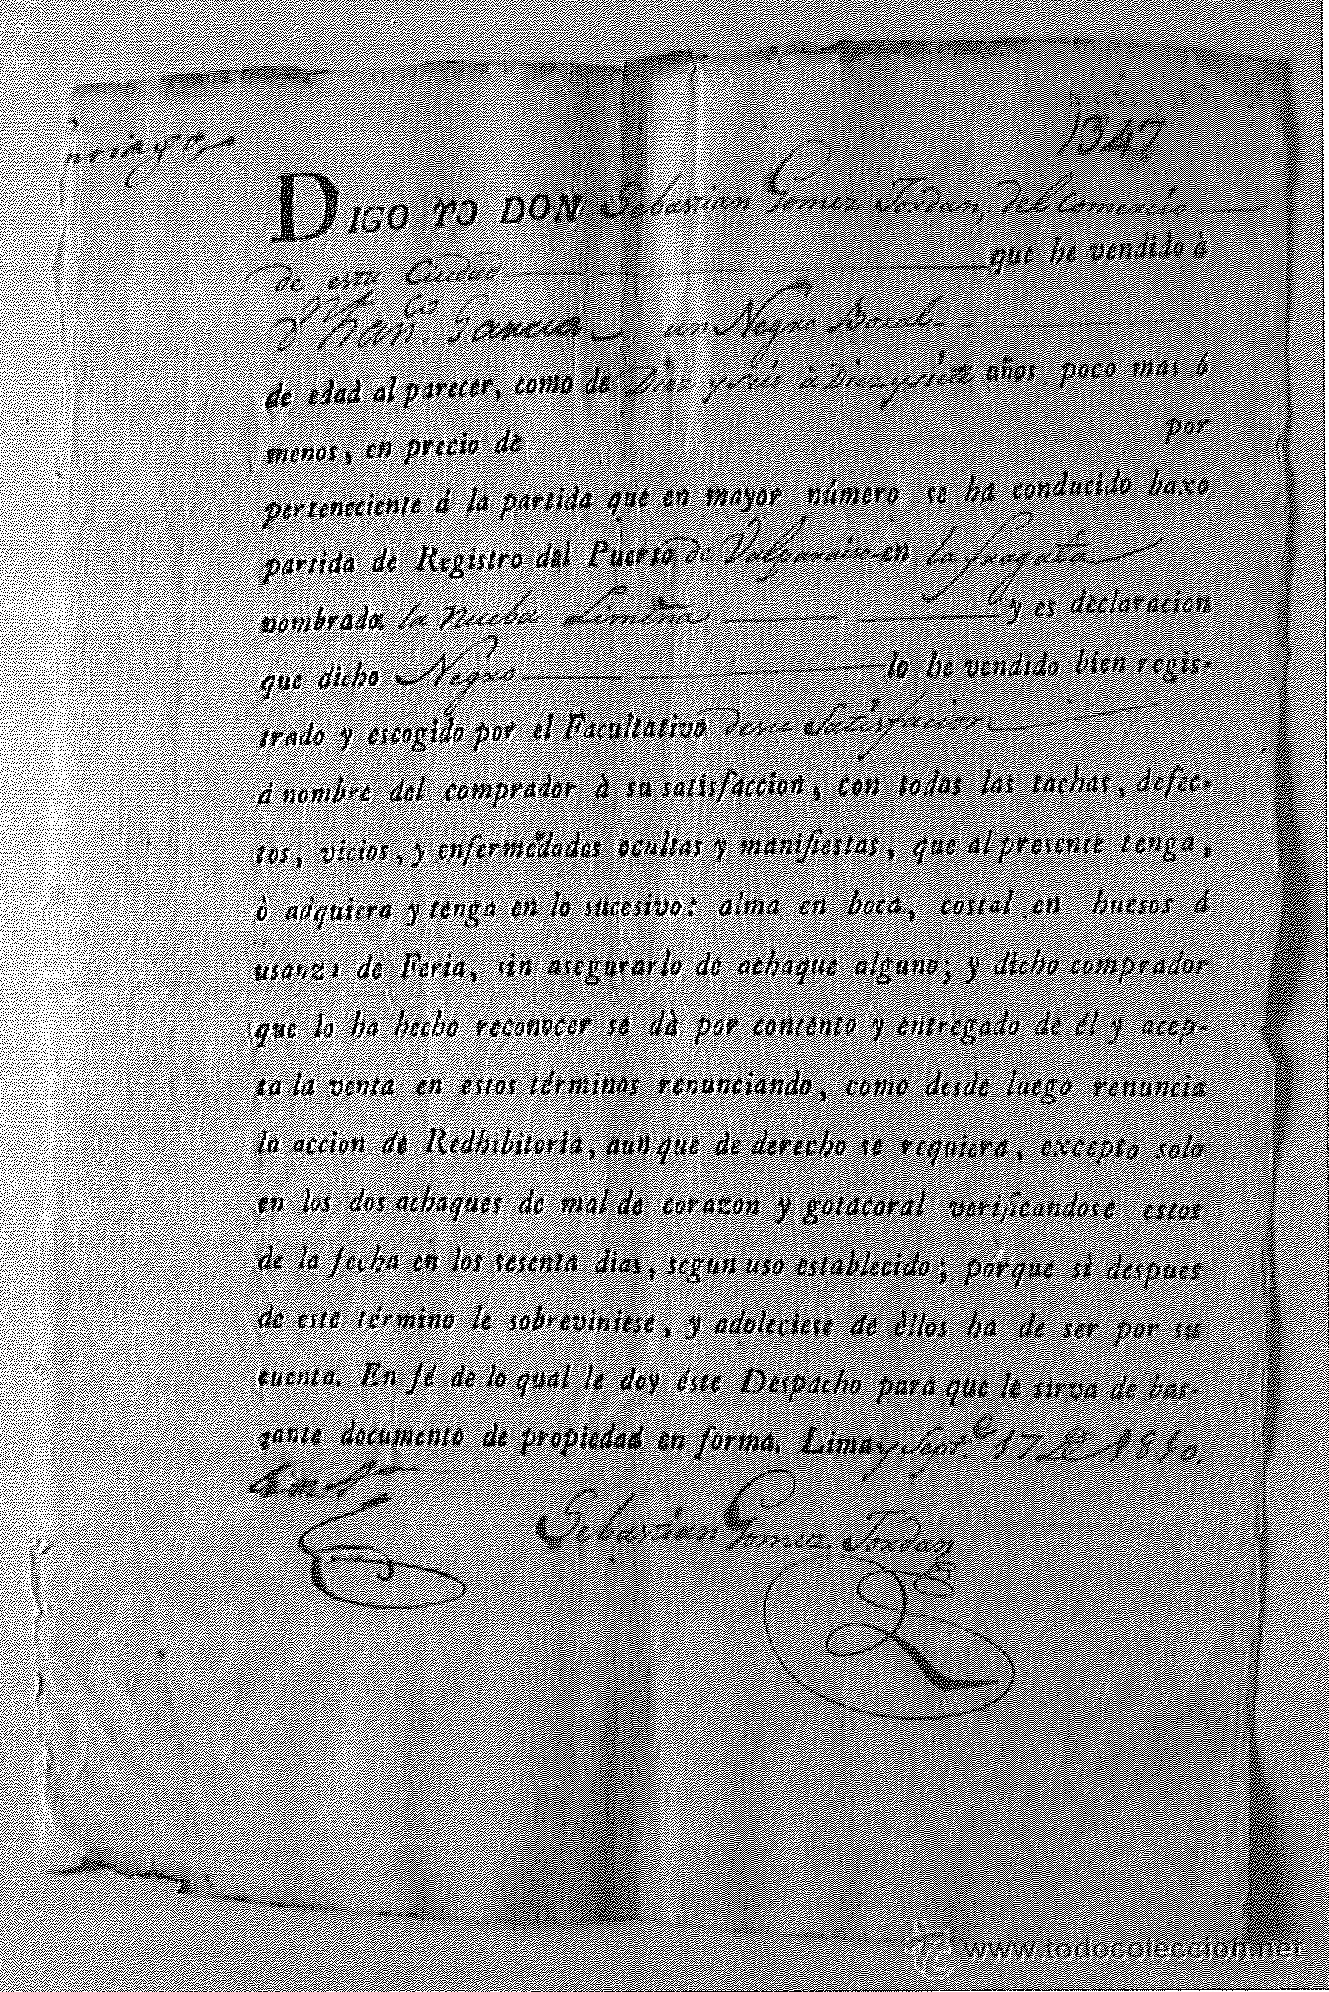 DIGO YO DON Sebastian Gomez del Comercio
de esta Ciudad que he vendido á
un Negro Bozal
de edad al parecer, como de años poco mas ó
menos, en precio de por
perteneciente á la partida que en mayor número se ha conducido baxo
partida de Registro del Puerto de Valparaiso en la fragata
nombrada la Nueba Limeña y es declaracion
que dicho Negro lo he vendido bien regis-
trado y escogido por el Facultativo
á nombre del comprador à su satisfaccion, con todas las tachas, defec-
tos, vicios, y enfermedades ocultas y manifiestas, que al presente tenga,
ò adquiera y tenga en lo sucesivo: alma en boca, costal en huesos á
usanza de Feria, sin asegurarlo de achaque alguno; y dicho comprador
que lo ha hecho reconocer se dà por contento y entregado de él y acep-
ta la venta en estos términos renunciando, como desde luego renuncia
la accion de Redhibitoria, aunque de derecho se requiera, excepto solo
en los dos achaques de mal de corazon y gotacoral verificandose estos
de la fecha en los sesenta dias, segun uso establecido; porque si despues
de este término le sobreviniese, y adoleciese de èllos ha de ser por su
cuenta. En fé de lo qual le doy éste Despacho para que le sirva de bas-
tante documento de propiedad en forma. Lima
Sebastian Gomez
www.todocoleccion.net